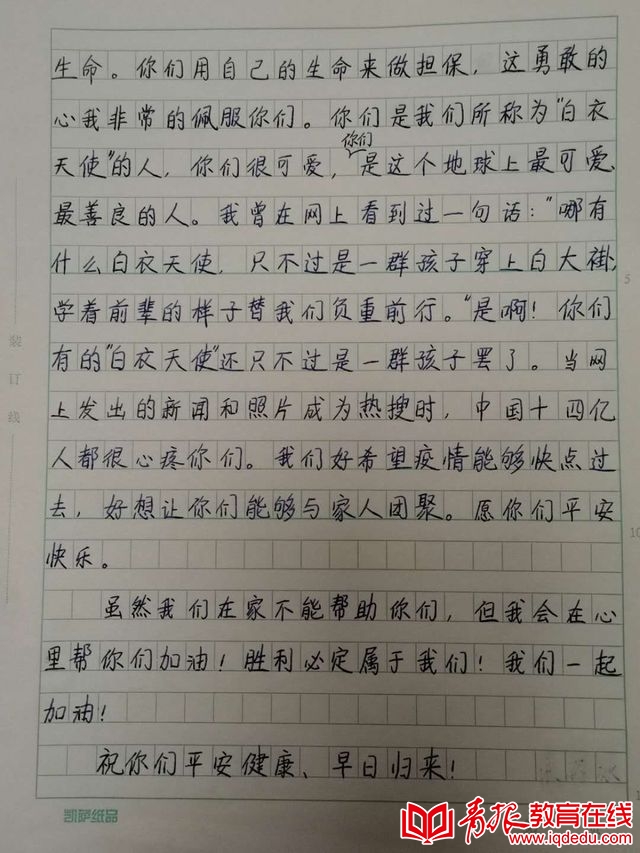 生命。你们用自己的生命来做担保，这勇敢的
心我非常的佩服你们。你们是我们所称为"白衣
你们
天使"的人，你们很可爱，是这个地球上最可爱、
最善良的人。我曾在网上看到过一句话："哪有
什么白衣天使，只不过是一群孩子穿上白大褂，
学着前辈的样子替我们负重前行。"是啊！你们
有的"白衣天使"还只不过是一群孩子罢了。当网
上发出的新闻和照片成为热搜时，中国十四亿
人都很心疼你们。我们好希望疫情能够快点过
去，好想让你们能够与家人团聚。愿你们平安
快乐。
虽然我们在家不能帮助你们，但我会在心
里帮你们加油！胜利必定属于我们！我们一起
加油！
祝你们平安健康、早日归来！
装订线
5
10
凯萨纸品
青报教育在线
www.iqdedu.com